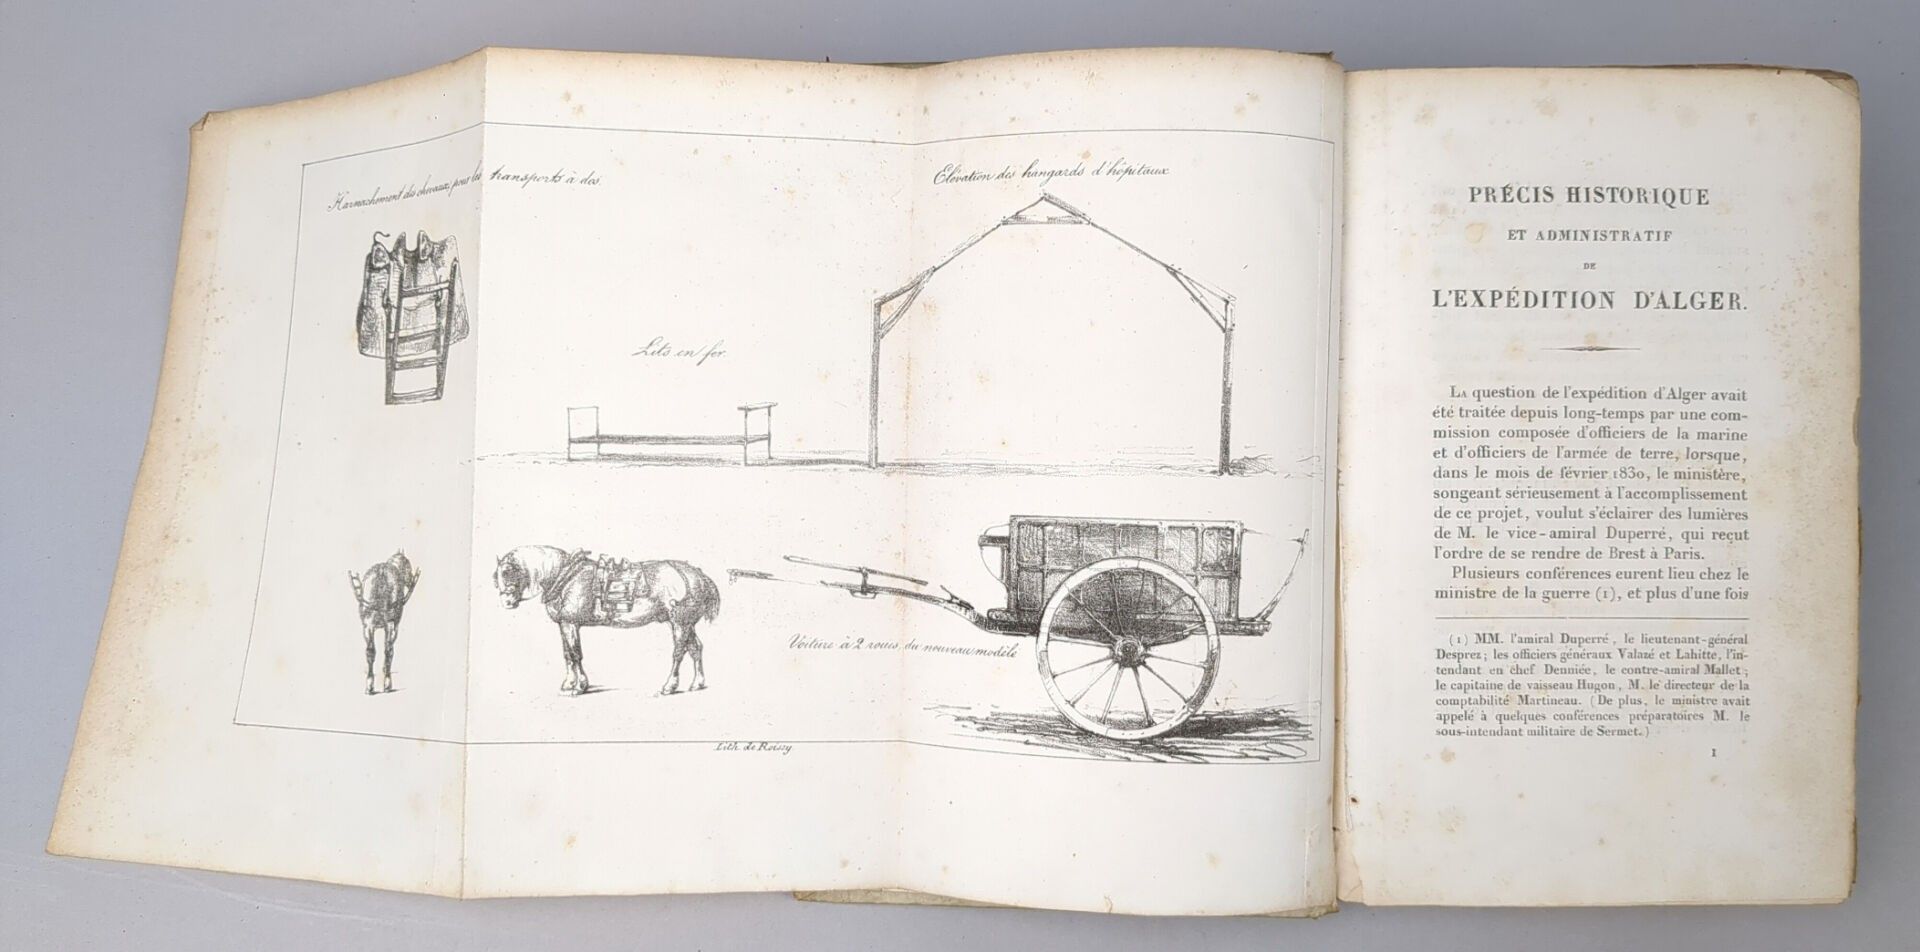 Harnachement des chevaux, pour les transports à dos.
Elévation des hangards d'hôpitaux
Lits en fer.
Voiture à 2 roues, du nouveau modèle
Lith. de Roissy
PRÉCIS HISTORIQUE
ET ADMINISTRATIF
DE
L'EXPÉDITION D'ALGER.
LA question de l'expédition d'Alger avait
été traitée depuis long-temps par une com-
mission composée d'officiers de la marine
et d'officiers de l'armée de terre, lorsque,
dans le mois de février 1830, le ministère,
songeant sérieusement à l'accomplissement
de ce projet, voulut s'éclairer des lumières
de M. le vice-amiral Duperré, qui reçut
l'ordre de se rendre de Brest à Paris.
Plusieurs conférences eurent lieu chez le
ministre de la guerre (1), et plus d'une fois
(1) MM. l'amiral Duperré, le lieutenant-général
Desprez; les officiers généraux Valazé et Lahitte, l'in-
tendant en chef Denniée, le contre-amiral Mallet;
le capitaine de vaisseau Hugon, M. le directeur de la
comptabilité Martineau. (De plus, le ministre avait
appelé à quelques conférences préparatoires M. le
sous-intendant militaire de Sermet.)
1